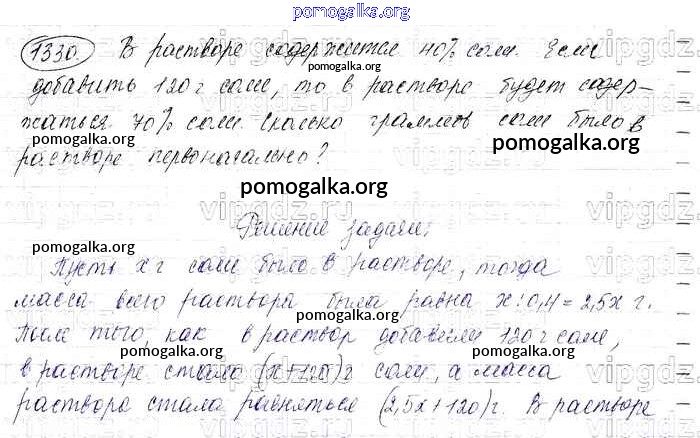 pomogalka.org
1330. В растворе содержится 40% соли. Если
pomogalka.org
добавить 120 г соли, то в растворе будет содер-
pomogalka.org
жаться 70% соли. Сколько граммов соли было в
pomogalka.org
растворе первоначально?
pomogalka.org
Решение задачи:
pomogalka.org
Пусть x г соли было в растворе, тогда
pomogalka.org
масса всего раствора была равна x : 0,4 = 2,5x г.
После того, как в раствор добавили 120 г соли,
pomogalka.org
в растворе стало (x+120) г соли, а масса
раствора стала равняться (2,5x+120) г. В растворе
pomogalka.org